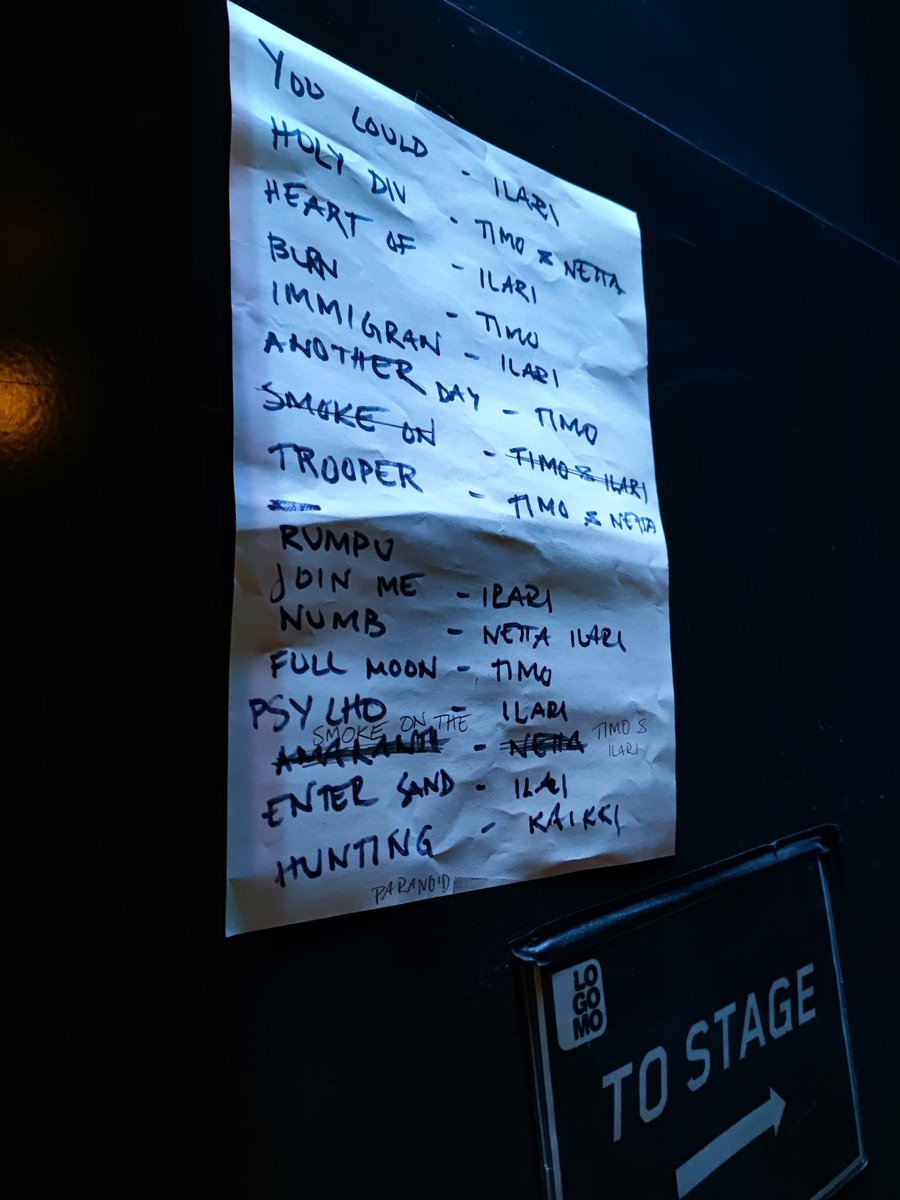 YOU COULD - ILARI
HOLY DIV - TIMO & NETTA
HEART OF - ILARI
BURN - TIMO
IMMIGRAN - ILARI
ANOTHER DAY - TIMO
SMOKE ON - TIMO & ILARI
TROOPER - TIMO & NETTA
RUMPU
JOIN ME - ILARI
NUMB - NETTA ILARI
FULL MOON - TIMO
PSYCHO - ILARI
SMOKE ON THE TIMO & ILARI
AMARANTH - NETTA
ENTER SAND - ILARI
HUNTING - KAIKKI
PARANOID
LO
GO
MO
TO STAGE